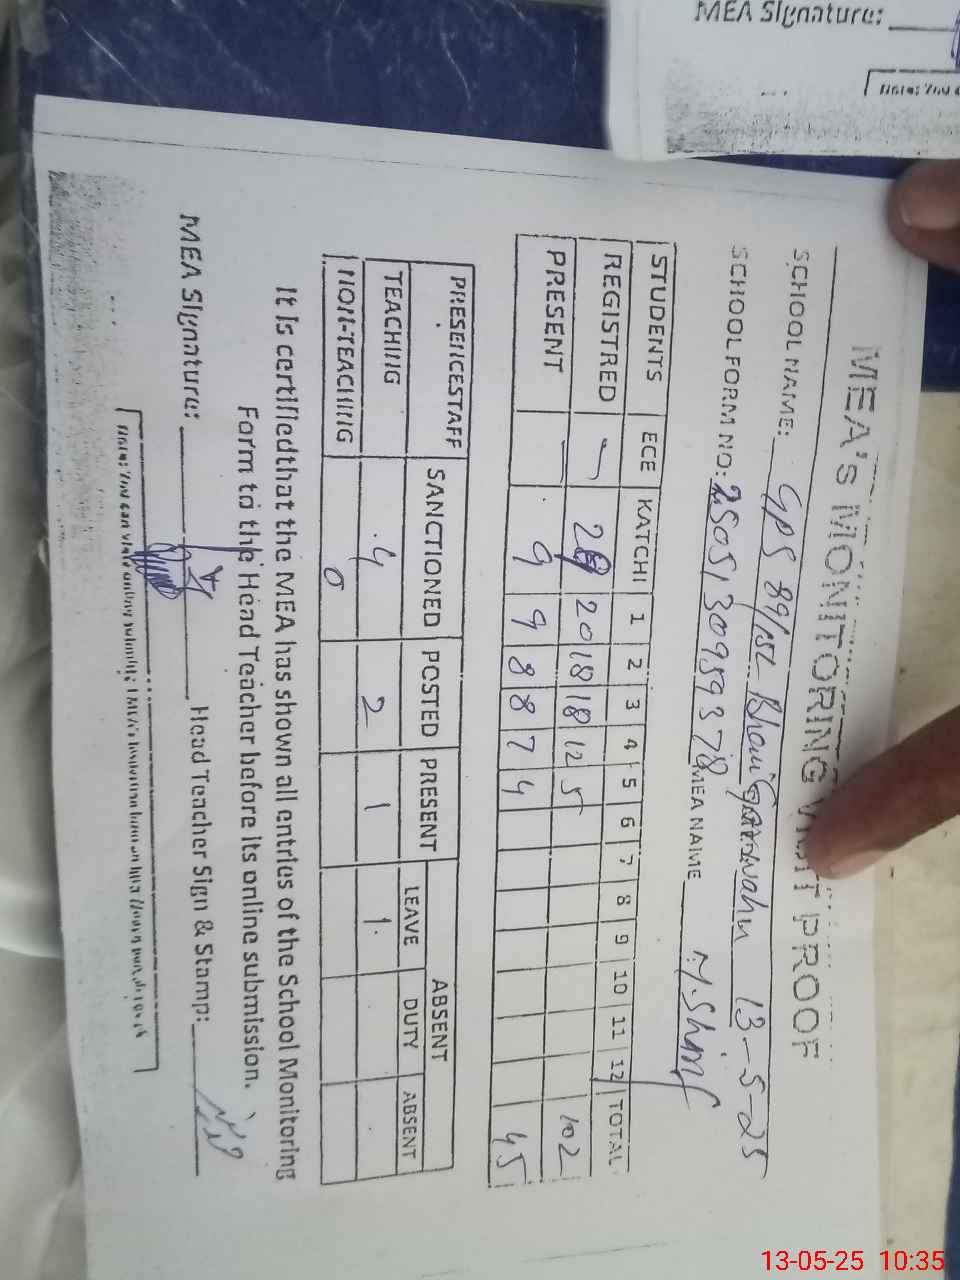 MEA Signature:
MEA'S MONITORING VISIT PROOF
SCHOOL NAME: GPS 89/15L 13-5-25
SCHOOL FORM NO: MEA NAME
STUDENTS ECE KATCHI 1 2 3 4 5 6 7 8 9 10 11 12 TOTAL
REGISTRED 20 18 18 12 5 102
PRESENT 9 9 8 8 7 4 45
PRESENCESTAFF SANCTIONED POSTED PRESENT ABSENT
LEAVE DUTY ABSENT
TEACHING 4 2 1 1
NON-TEACHING 0
It is certifiedthat the MEA has shown all entries of the School Monitoring
Form to the Head Teacher before its online submission.
MEA Signature: Head Teacher Sign & Stamp:
Note: You can
13-05-25 10:35